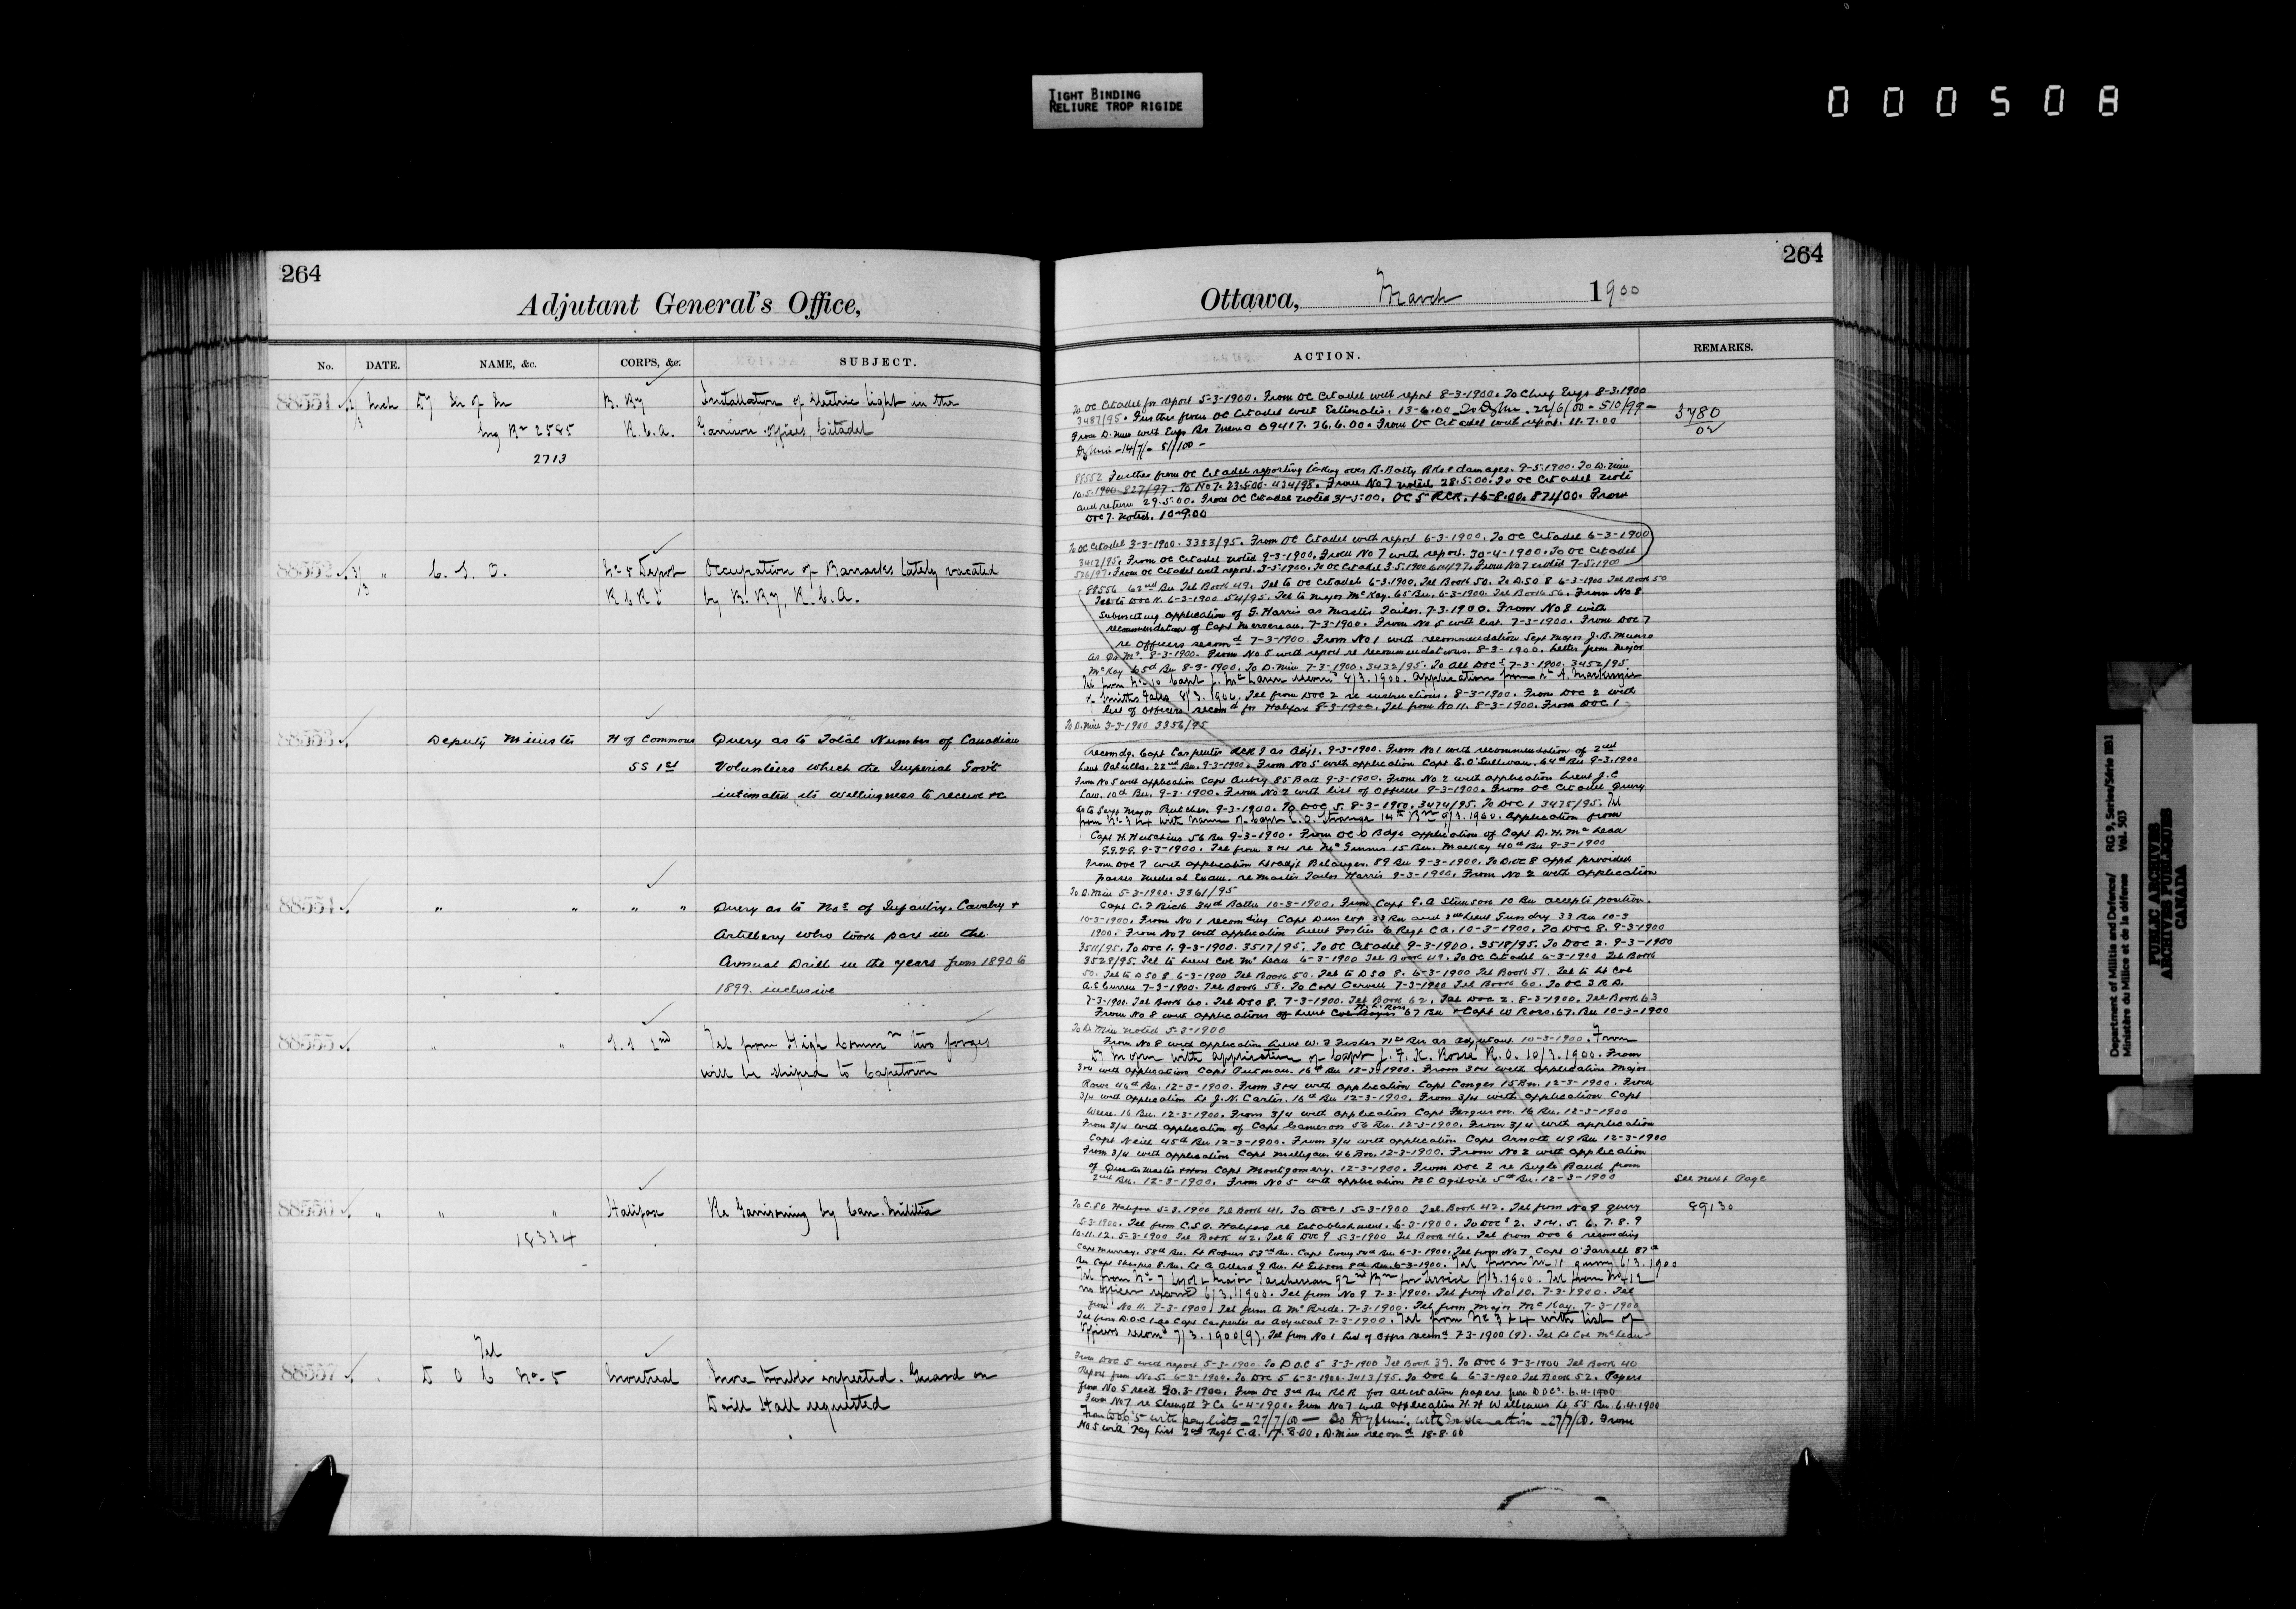 TIGHT BINDING
RELIURE TROP RIGIDE
000508
264
Adjutant General's Office,
No. DATE. NAME, &c. CORPS, &c. SUBJECT.
88551 Mch Dy M of M B. By Installation of Electric light in the
Eng Br 2585 R.C.A. Garrison offices, Citadel
2713
88552 " C. S. O. No 5 Depot Occupation of Barracks lately vacated
R C R I by B. By, R.C.A.
88553 Deputy Minister H of Commons Query as to Total Number of Canadian
SS 1st Volunteers which the Imperial Govt
intimated its willingness to receive &c
88554 " " " " Query as to Nos of Infantry, Cavalry &
Artillery who took part in the
Annual Drill in the years from 1890 to
1899. inclusive
88555 " " S.S 2nd Tel from High Commr two forges
will be shiped to Capetown
88556 " " " Halifax Re Garrisoning by Can. Militia
18334
Tel
88557 D O C No 5 Montreal More trouble expected. Guard on
Drill Hall requested
264
Ottawa, March 1900
ACTION. REMARKS.
To OC Citadel for report 5-3-1900. From OC Citadel with report 8-3-1900. To Chief Engr 8-3-1900
3487/95. Further from OC Citadel with Estimates. 13-6.00 22/6/00 - 510/99 -
From D. Min with Engr Br Memo 09417. 26.6.00. From OC Citadel with report. 11.7.00
3780
02
88552 Further from OC Citadel reporting taking over B. Batty Bks & damages. 9-5-1900. To D. Min
10.5.1900 827/97. To No 7. 23.5.00. 434/98. From No 7 noted 28.5.00. To OC Citadel note
and return 29.5.00. From OC Citadel noted 31-5-00. OC 5 RCR. 16-8.00. 874/00. From
DOC 7. Noted. 10-9.00
To OC Citadel 3-3-1900. 3353/95. From OC Citadel with report 6-3-1900. To OC Citadel 6-3-1900
3412/95. From OC Citadel noted 9-3-1900. From No 7 with report. 30-4-1900. To OC Citadel
From OC Citadel with report. 3-5-1900. To OC Citadel 3.5.1900 From No 7 noted 7-5-1900
88556 62nd Bn Tel Book 49. Tel to OC Citadel 6-3-1900. Tel Book 50. To DSO 8 6-3-1900 Tel Book 50
Tel to DOC 11. 6-3-1900 54/95. Tel to Major McKay. 65 Bn. 6-3-1900. Tel Book 56. From No 8
submitting application of G. Harris as Master Tailor. 7-3-1900. From No 8 with
recommendation of Capt Mersereau. 7-3-1900. From No 5 with list. 7-3-1900. From DOC 7
re Officers recomd 7-3-1900. From No 1 with recommendation Sergt Major J. B. Munro
as Qr Mr. 8-3-1900. From No 5 with report re recommendations. 8-3-1900. Letter from Major
McKay 65d Bn 8-3-1900. To D. Min 7-3-1900. 3432/95. To all DOCs 7-3-1900. 3452/95.
Tel from No 10 Capt J. McLaren recomd 8/3.1900. Application from Lt A. Mackenzie
Smiths Falls 8/3.1900. Tel from DOC 2 re instructions. 8-3-1900. From DOC 2 with
list of Officers recomd for Halifax 8-3-1900. Tel from No 11. 8-3-1900. From DOC 1
To D. Min 3-3-1900 3356/95
recomdg. Capt Carpenter RCR I as Adjt. 9-3-1900. From No 1 with recommendation of 2nd
Lieut 22nd Bn. 9-3-1900. From No 5 with application Capt E. O'Sullivan. 64th Bn 9-3-1900
From No 5 with application Capt Aubry 85 Batt 9-3-1900. From No 2 with application Lieut J. C
Law. 10th Bn. 9-3-1900. From No 2 with list of Officers 9-3-1900. From OC Citadel Query
as to Sergt Major Butcher. 9-3-1900. To DOC 5. 8-3-1900. 3474/95. To DOC 1 3475/95. Tel
from No 3 & 4 with name of Capt E. O. Strange 14th Bn 9/3.1900. Application from
Capt H. Hutchins 56 Bn 9-3-1900. From OC Bdge application of Capt D. H. McLean
G.G.F.G. 9-3-1900. Tel from 3 & 4 re McGinnis 15 Bn. Mackay 40th Bn 9-3-1900
From DOC 7 with application Lt & Adjt Belanger. 89 Bn 9-3-1900. To DOC 8 appd provided
passes Medical Exam. re Master Tailor Harris 9-3-1900. From No 2 with application
To D. Min 5-3-1900. 3361/95
Capt C. F Rich 34th Battn 10-3-1900. From Capt F. A Stimson 10 Bn accepts position.
10-3-1900. From No 1 recomding Capt Dunlop 33 Bn and 2nd Lieut Gundry 33 Bn 10-3
1900. From No 7 with application Lieut Foster 6 Regt CA. 10-3-1900. To DOC 8. 9-3-1900
3511/95. To DOC 1. 9-3-1900. 3517/95. To OC Citadel 9-3-1900. 3518/95. To DOC 2. 9-3-1900
3528/95. Tel to Lieut Col McLean 6-3-1900 Tel Book 49. To OC Citadel 6-3-1900 Tel Book
50. Tel to DSO 8 6-3-1900 Tel Book 50. Tel to DSO 8. 6-3-1900 Tel Book 51. Tel to Lt Col
A. E Curren 7-3-1900. Tel Book 58. To Capt Carvell 7-3-1900 Tel Book 60. To OC 3 R.D.
7-3-1900. Tel Book 60. Tel DSO 8. 7-3-1900. Tel Book 62. Tel DOC 2. 8-3-1900. Tel Book 63
From No 8 with applications of Lieut 67 Bn & Capt W Ross. 67. Bn 10-3-1900
To D. Min noted 5-3-1900
From No 8 with application Lieut W. F Fisher 71st Bn as Adjutant 10-3-1900. From
Dy M of M with application of Capt J. F. K. Rosse R.O. 10/3.1900. From
3 & 4 with application Capt Putman. 16th Bn 12-3-1900. From 3 & 4 with application Major
Rowe 46th Bn. 12-3-1900. From 3 & 4 with application Capt Conger 15 Bn. 12-3-1900. From
3/4 with application Lt J. N. Carter. 16th Bn 12-3-1900. From 3/4 with application Capt
Weese. 16 Bn. 12-3-1900. From 3/4 with application Capt Ferguson. 16 Bn. 12-3-1900
From 3/4 with application of Capt Cameron 56 Bn. 12-3-1900. From 3/4 with application
Capt Neill 45th Bn 12-3-1900. From 3/4 with application Capt Arnott 49 Bn 12-3-1900
From 3/4 with application Capt Milligan. 46 Bn. 12-3-1900. From No 2 with application
of Quartermaster & Hon Capt Montgomery. 12-3-1900. From DOC 2 re Bugle Band from
2nd Bn. 12-3-1900. From No 5 with application N C Ogilvie 5th Bn. 12-3-1900 See next Page
To C.S.O Halifax 5-3-1900 Tel Book 41. To DOC 1 5-3-1900 Tel. Book 42. Tel from No 9 query 89130
5-3-1900. Tel from C.S.O. Halifax re Establishment. 6-3-1900. To DOCs 2. 3 & 4. 5. 6. 7. 8. 9
10.11.12. 5-3-1900 Tel Book 42. Tel to DOC 9 5-3-1900 Tel Book 46. Tel from DOC 6 recomding
Capt Murray. 58th Bn. Lt Robins 53rd Bn. Capt 54th Bn 6-3-1900. Tel from No 7 Capt O'Farrell 87th
Bn Capt Sharples 8 Bn. Lt A Allard 9 Bn. Lt Gibson 8th Bn. 6-3-1900. Tel from No 11 query 6/3.1900
Tel from No 7 Major Taschereau 92nd Bn for service 6/3.1900. Tel from No 12
no officer recomd 6/3.1900. Tel from No 9 7-3-1900. Tel from No 10. 7-3-1900. Tel
from No 11. 7-3-1900. Tel from A McBride. 7-3-1900. Tel from Major McKay. 7-3-1900
Tel from D.O.C 1 re Capt Carpenter as Adjutant 7-3-1900. Tel from No 3 & 4 with list of
Officers recomd 7/3.1900 (9). Tel from No 1 list of Offrs recomd 7-3-1900 (9). Tel Lt Col McLean
From DOC 5 with report 5-3-1900 To D.O.C 5 3-3-1900 Tel Book 39. To DOC 6 3-3-1900 Tel Book 40
Report from No 5 6-3-1900. To DOC 5 6-3-1900. 3413/95. To DOC 6 6-3-1900 Tel Book 52. Papers
from No 5 recd 20.3-1900. From OC 3rd Bn RCR for attestation papers from DOCs. 6.4-1900
From No 7 re Strength F Co 6-4-1900. From No 7 with application H. H Williams Lt 55 Bn. 6.4.1900
From DOC 5 with pay lists - 27/7/00 - To Dy Min. with Explanation - 27/7/00. From
No 5 with Pay List 2nd Regt C.A. 17.8.00. D. Min recomd 18-8.00
Department of Militia and Defence/ RG 9, Series/Série IIB1
Ministère du Milice et de la défense Vol. 503
PUBLIC ARCHIVES
ARCHIVES PUBLIQUES
CANADA